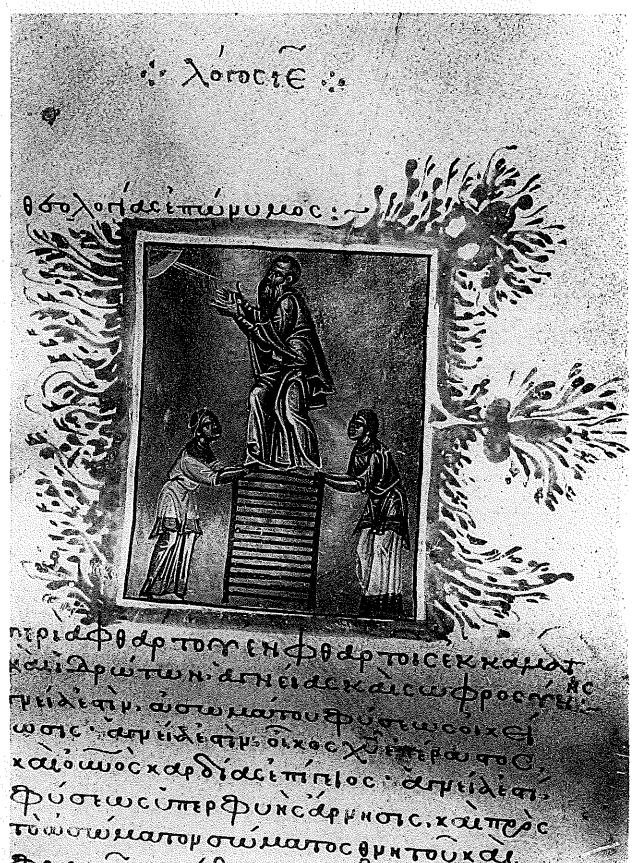 λόγος ιε
θεολογίας ἐπώνυμος :~
περι αφθαρτου εν φθαρτοις εκ καματ
καὶ ἱδρώτων ἁγνείας καὶ σωφροσύνης :~
ἁγνεία ἐστὶν, ἀσωμάτου φύσεως οἰκεί
ωσις· ἁγνεία ἐστὶν, οἶκος χυ ἐπέραστος,
καὶ οὐνος καρδίας ἐπίγειος· ἁγνεία ἐστι,
φύσεως ὑπερφυὴς ἄρνησις, καὶ πρὸς
τὸ ἀσώματον σώματος θνητοῦ καὶ